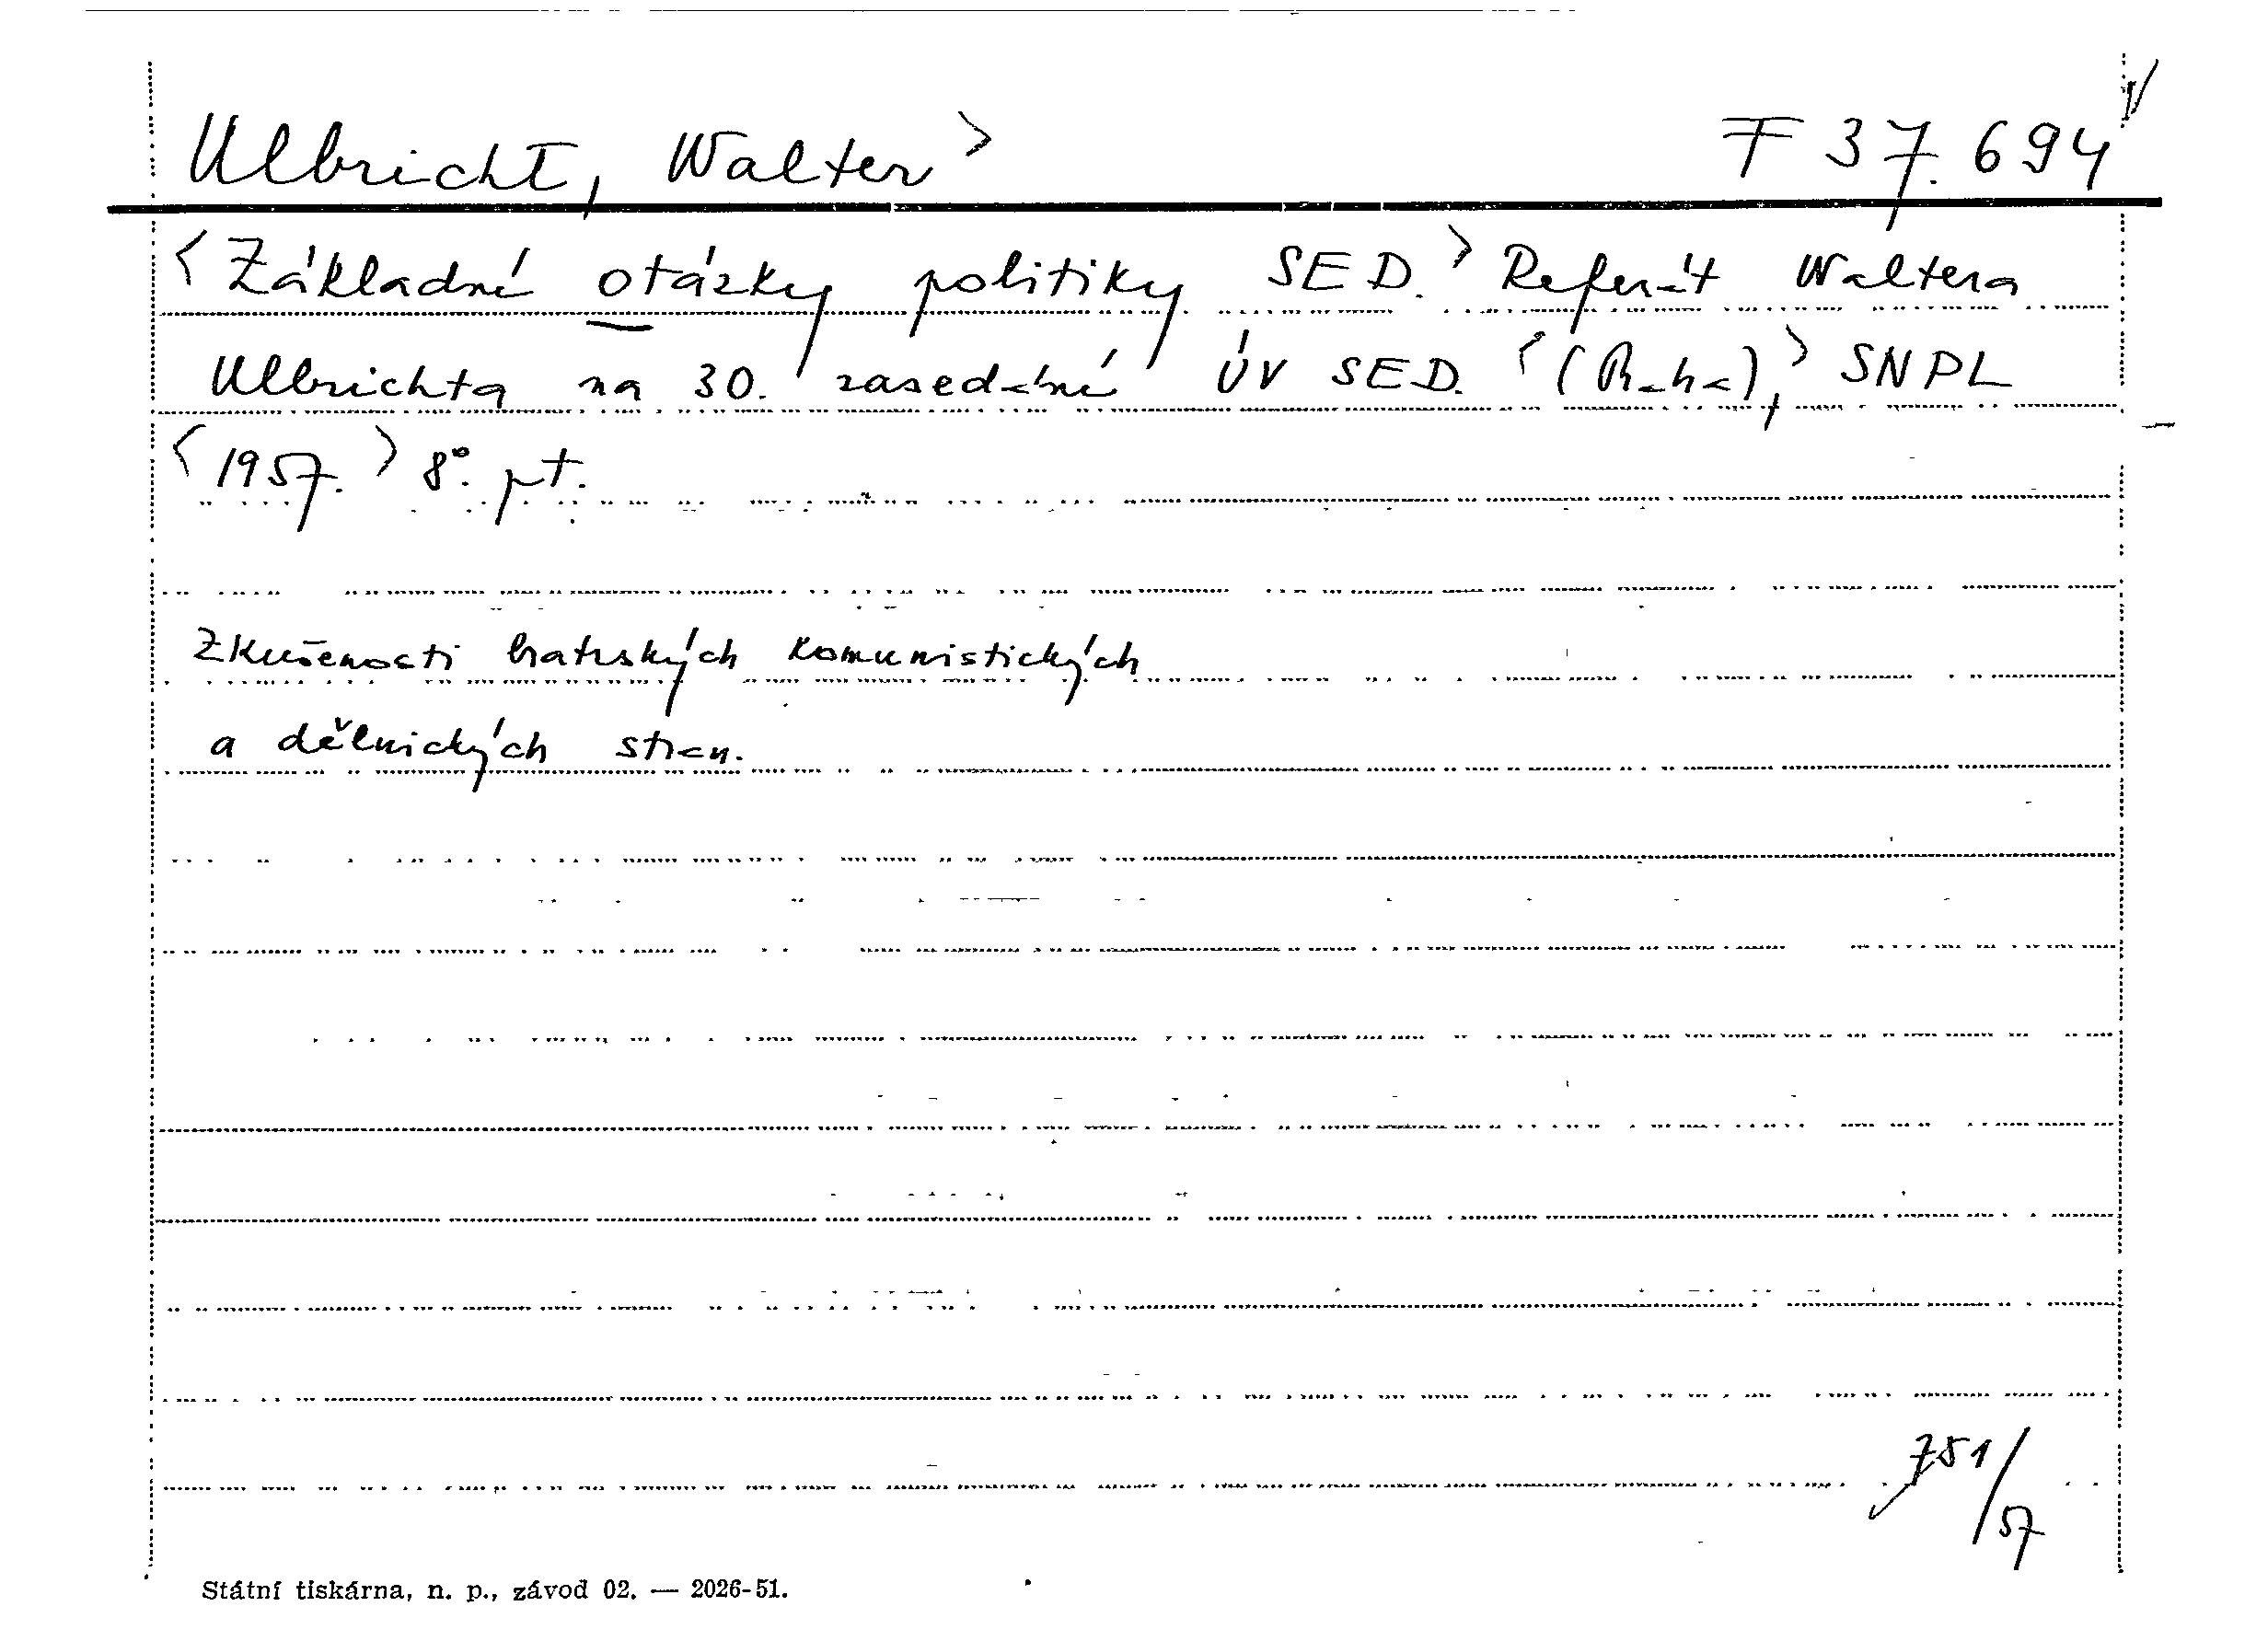 Ulbricht, Walter > F 37.694
<Základní otázky politiky SED.> Referát Waltera
Ulbrichta na 30. zasedání ÚV SED. <(Praha),> SNPL
<1957.> 8°. pt.
Zkušenosti bratrských komunistických
a dělnických stran.
751/57
Státní tiskárna, n. p., závod 02. — 2026-51.